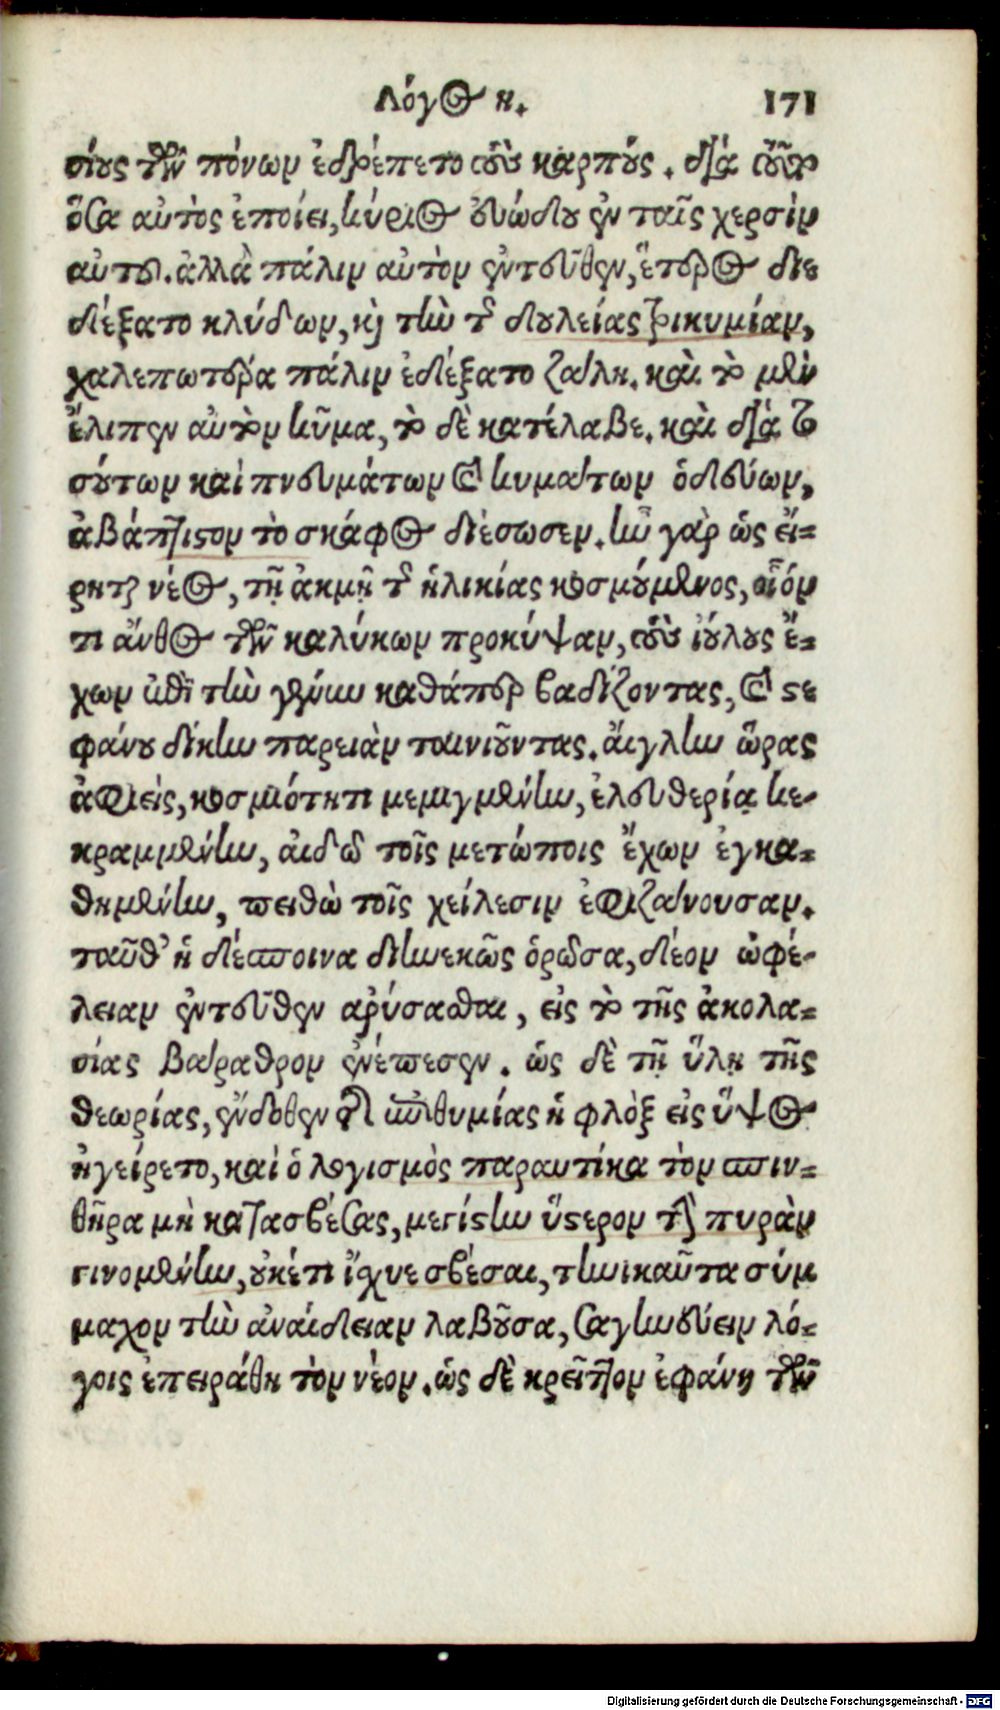 Λόγος η. 171
σίους τῶν πόνων ἐδρέπετο τοὺς καρπούς. διὰ τοῦτο
ὅσα αὐτὸς ἐποίει, κύριος εὐώδου ἐν ταῖς χερσὶν
αὐτοῦ. ἀλλὰ πάλιν αὐτὸν ἐντεῦθεν, ἕτερος διε
δέξατο κλύδων, καὶ τὴν τῆς δουλείας τρικυμίαν,
χαλεπωτέρα πάλιν ἐδέξατο ζάλη. καὶ τὸ μὲν
ἔλιπεν αὐτὸν κῦμα, τὸ δὲ κατέλαβε. καὶ διὰ το
σούτων καὶ πνευμάτων καὶ κυμάτων ὁδεύων,
ἀβάπτιστον τὸ σκάφος διέσωσεν. ἦν γὰρ ὡς εἴ-
ρηται νέος, τῇ ἀκμῇ τῆς ἡλικίας κοσμούμενος, οἷόν
τι ἄνθος τῶν καλύκων προκύψαν, τοὺς ἰούλους ἔ-
χων ἐπὶ τὴν γένυν καθάπερ βαδίζοντας, καὶ στε
φάνου δίκην παρειὰν ταινιοῦντας. αἴγλην ὥρας
ἀφιεὶς, κοσμιότητι μεμιγμένην, ἐλευθερίᾳ κε-
κραμμένην, αἰδῶ τοῖς μετώποις ἔχων ἐγκα-
θημένην, πειθὼ τοῖς χείλεσιν ἐφιζάνουσαν.
ταῦθ' ἡ δέσποινα διηνεκῶς ὁρῶσα, δέον ὠφέ-
λειαν ἐντεῦθεν αρύσασθαι, εἰς τὸ τῆς ἀκολα-
σίας βάραθρον ἐνέπεσεν. ὡς δὲ τῇ ὕλῃ τῆς
θεωρίας, ἔνδοθεν τῆς ἐπιθυμίας ἡ φλὸξ εἰς ὕψος
ἠγείρετο, καὶ ὁ λογισμὸς παραυτίκα τὸν σπιν-
θῆρα μὴ κατασβέσας, μεγίστην ὕστερον τὴν πυρὰν
γινομένην, οὐκέτι ἴσχυε σβέσαι, τηνικαῦτα σύμ
μαχον τὴν ἀναίδειαν λαβοῦσα, σαγηνεύειν λό-
γοις ἐπειράθη τὸν νέον. ὡς δὲ κρεῖττον ἐφάνη τῶν
Digitalisierung gefördert durch die Deutsche Forschungsgemeinschaft - DFG